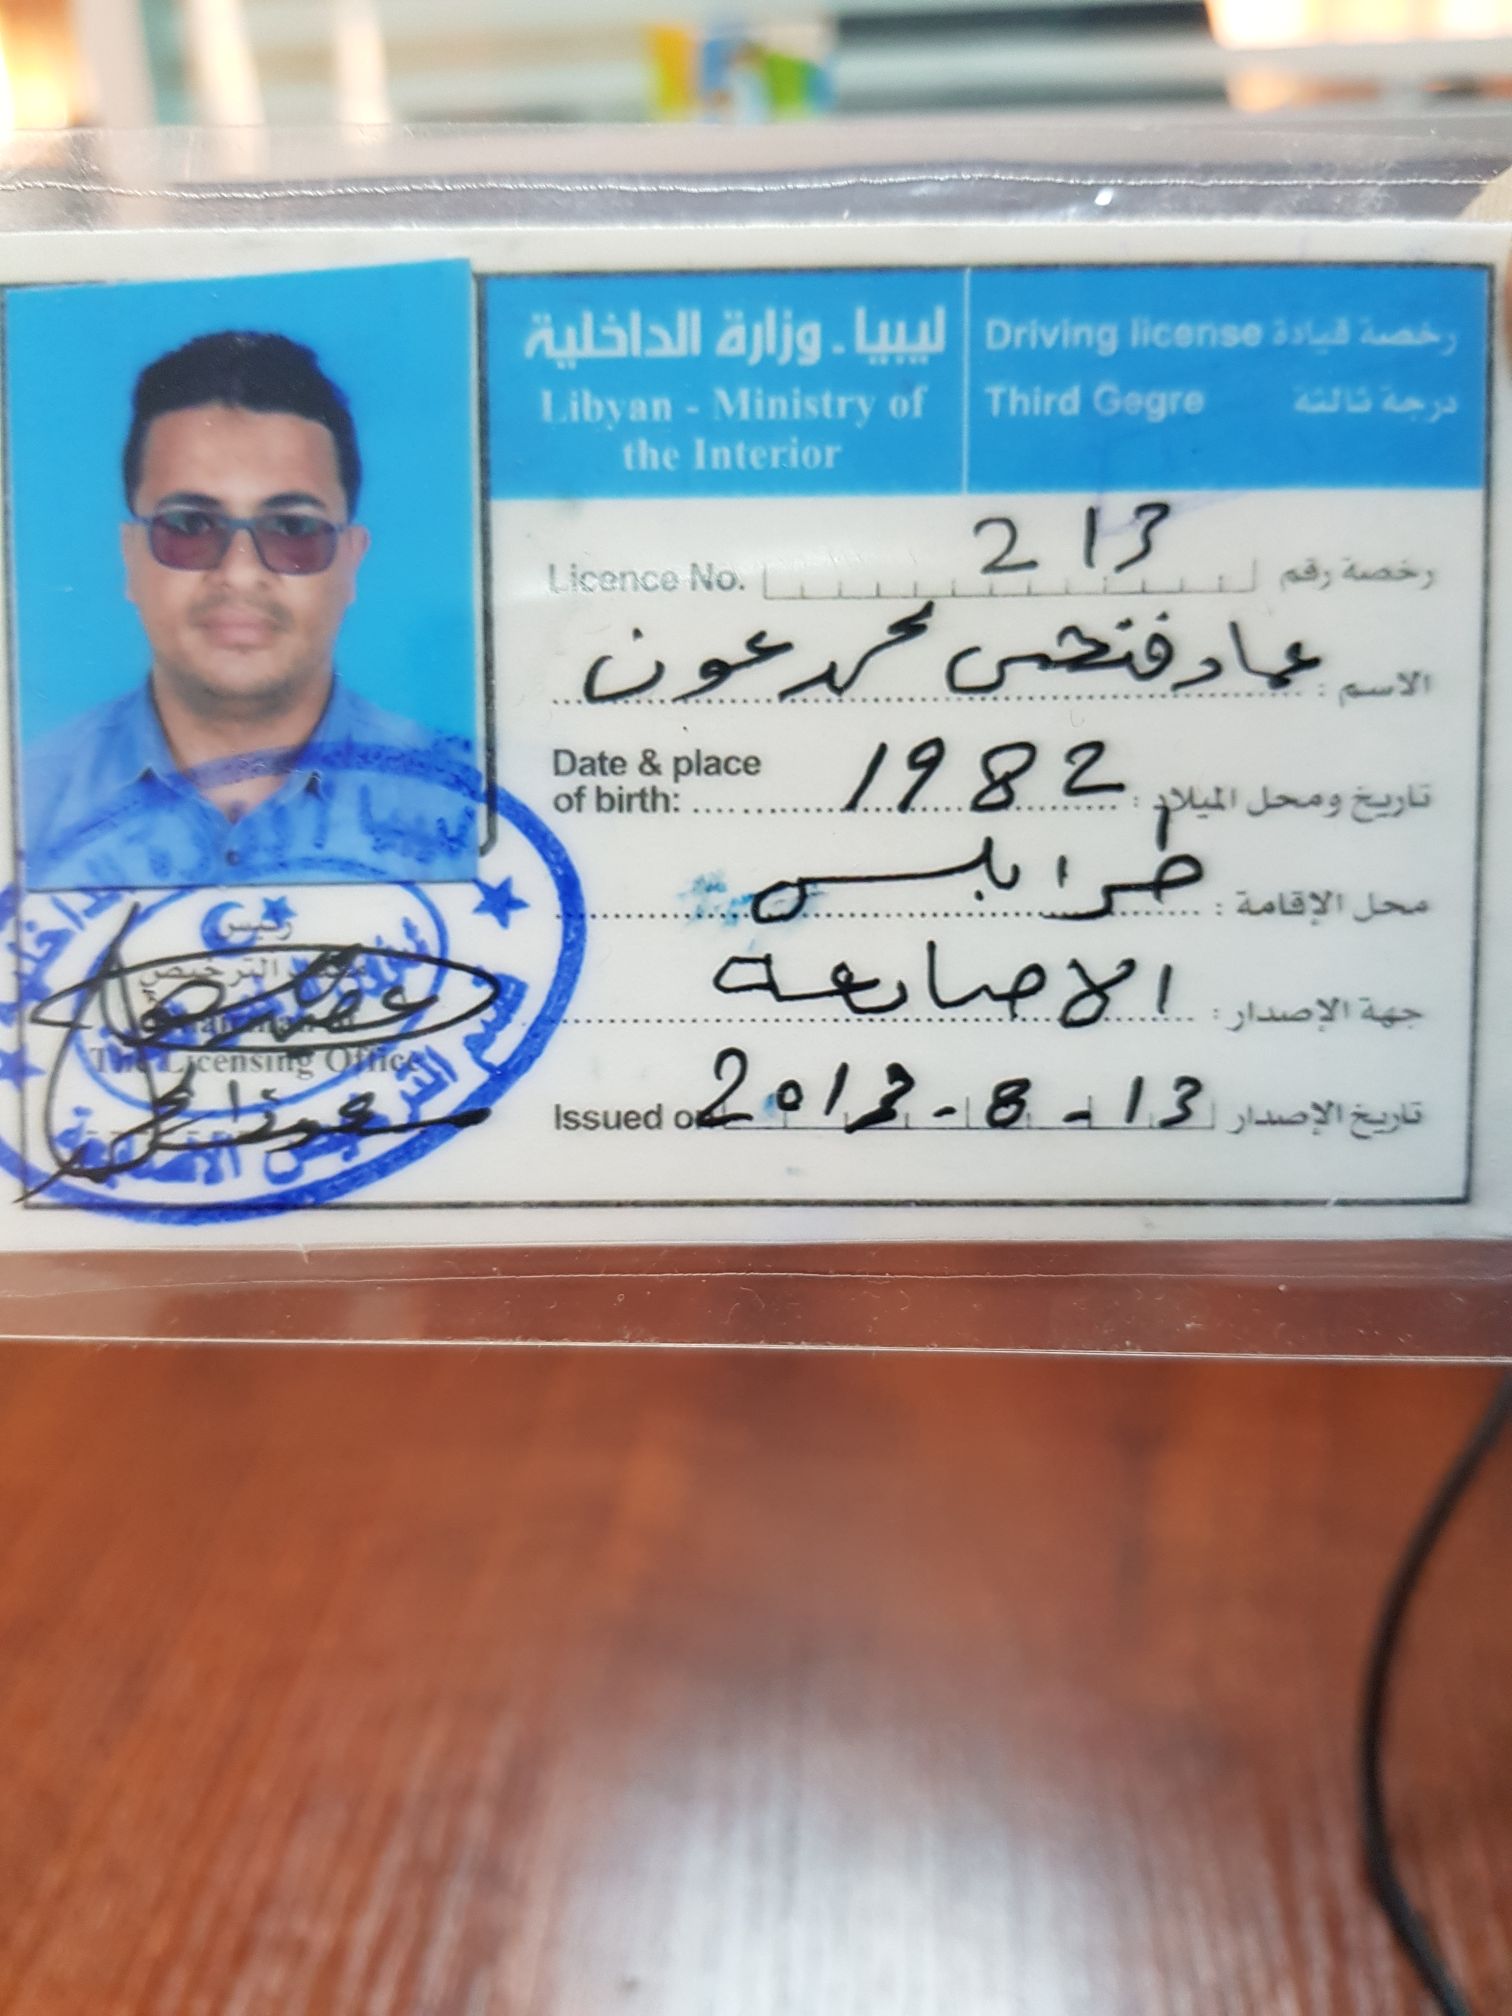 ليبيا - وزارة الداخلية
Libyan - Ministry of
the Interior
Driving license رخصة قيادة
Third Gegre درجة ثالثة
Licence No. 213 رخصة رقم
الاسم : عماد فتحي محمد عون
Date & place
of birth: 1982 تاريخ ومحل الميلاد :
محل الإقامة : طرابلس
جهة الإصدار : الاصابعة
Issued on 2013-8-13 تاريخ الإصدار
رئيس
The Licensing Office